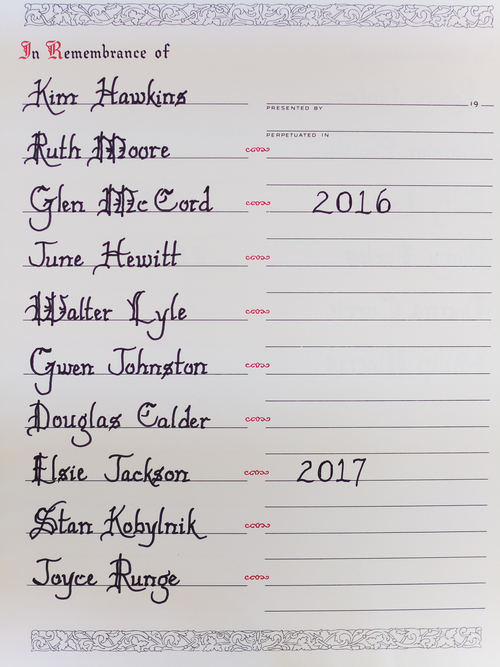 In Remembrance of
Kim Hawkins
PRESENTED BY 19
PERPETUATED IN
Ruth Moore
Glen McCord 2016
June Hewitt
Walter Lyle
Gwen Johnston
Douglas Calder
Elsie Jackson 2017
Stan Kobylnik
Joyce Runge